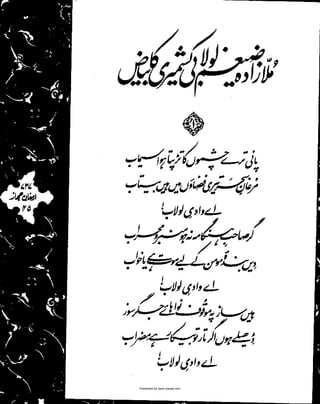 ملا زادہ ضیغم لولابی کشمیری کا بیاض
(۱)
پانی ترے چشموں کا تڑپتا ہوا سیماب
مرغانِ سحر تیری فضاؤں میں ہیں بیتاب
اے وادیِ لولاب!
گر صاحبِ ہنگامہ نہ ہو منبر و محراب
دیں بندۂ مومن کے لیے موت ہے یا خواب
اے وادیِ لولاب!
ہیں ساز پہ موقوف نوا ہائے جگر سوز
ڈھیلے ہوں اگر تار تو بے کار ہے مضراب
اے وادیِ لولاب!
ارمغان حجاز
Presented by www.ziaraat.com